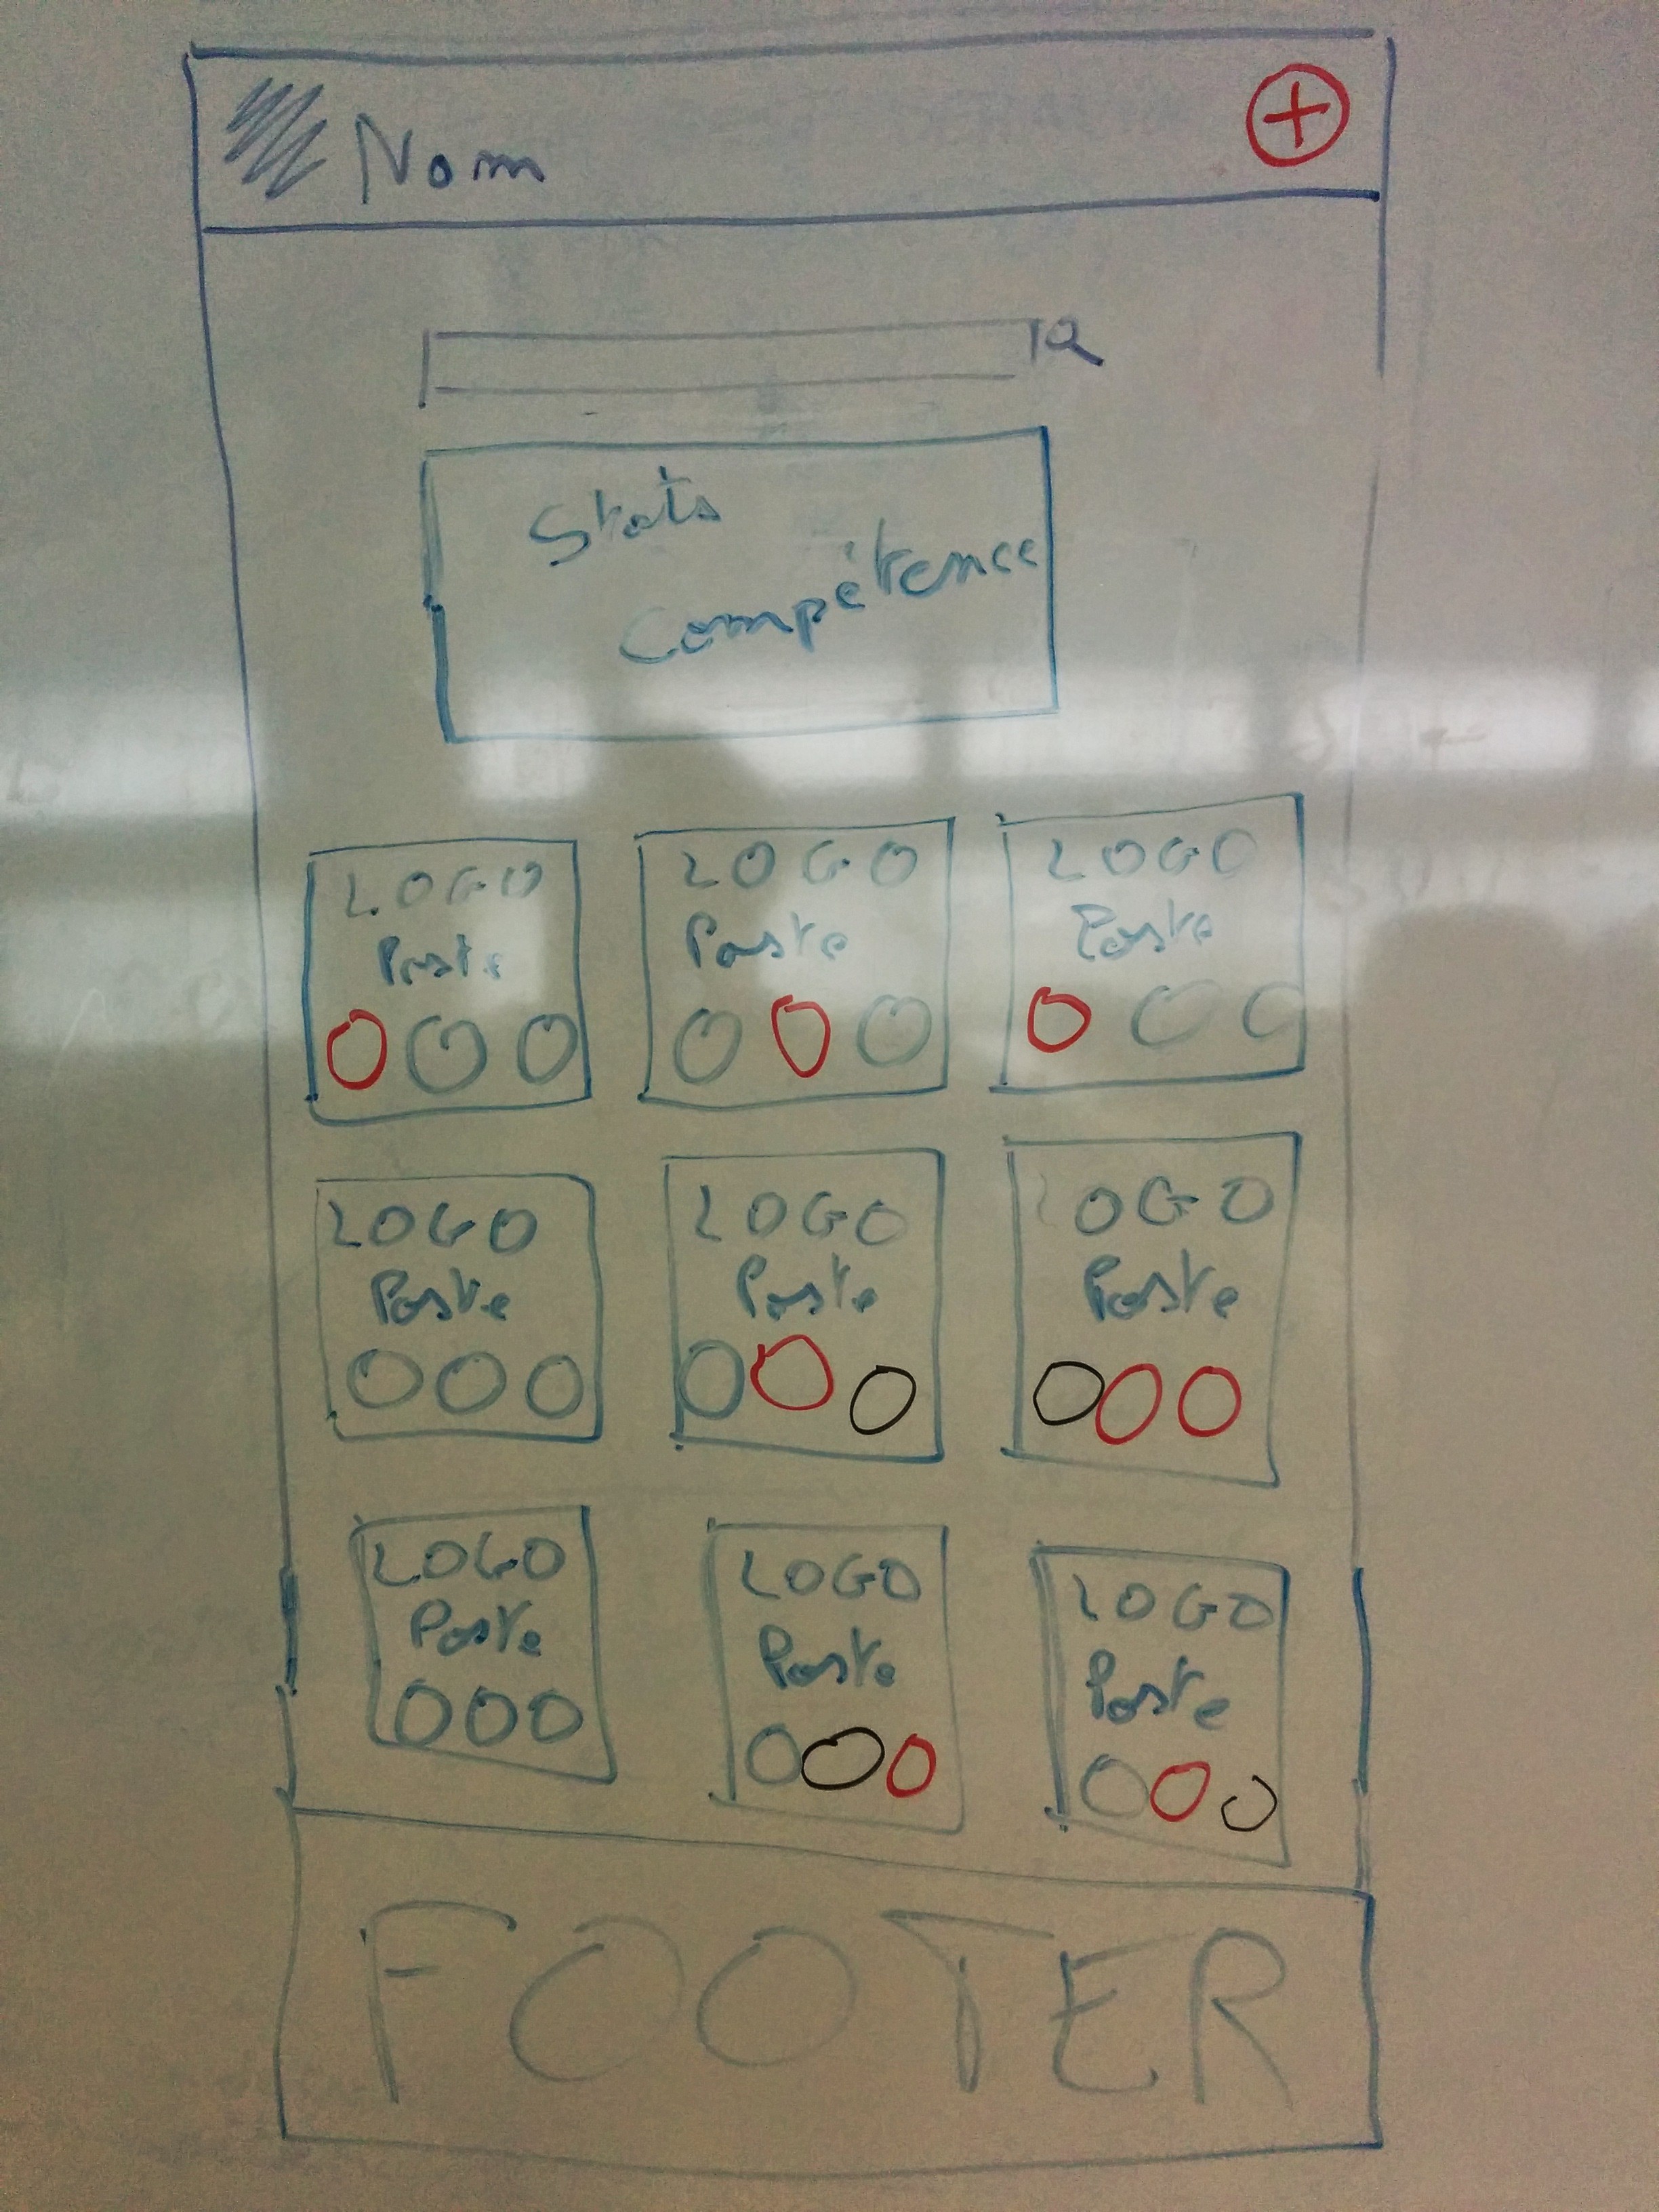 Nom
Stats
Compétence
LOGO
Poste
LOGO
Poste
LOGO
Poste
LOGO
Poste
LOGO
Poste
LOGO
Poste
LOGO
Poste
LOGO
Poste
LOGO
Poste
FOOTER